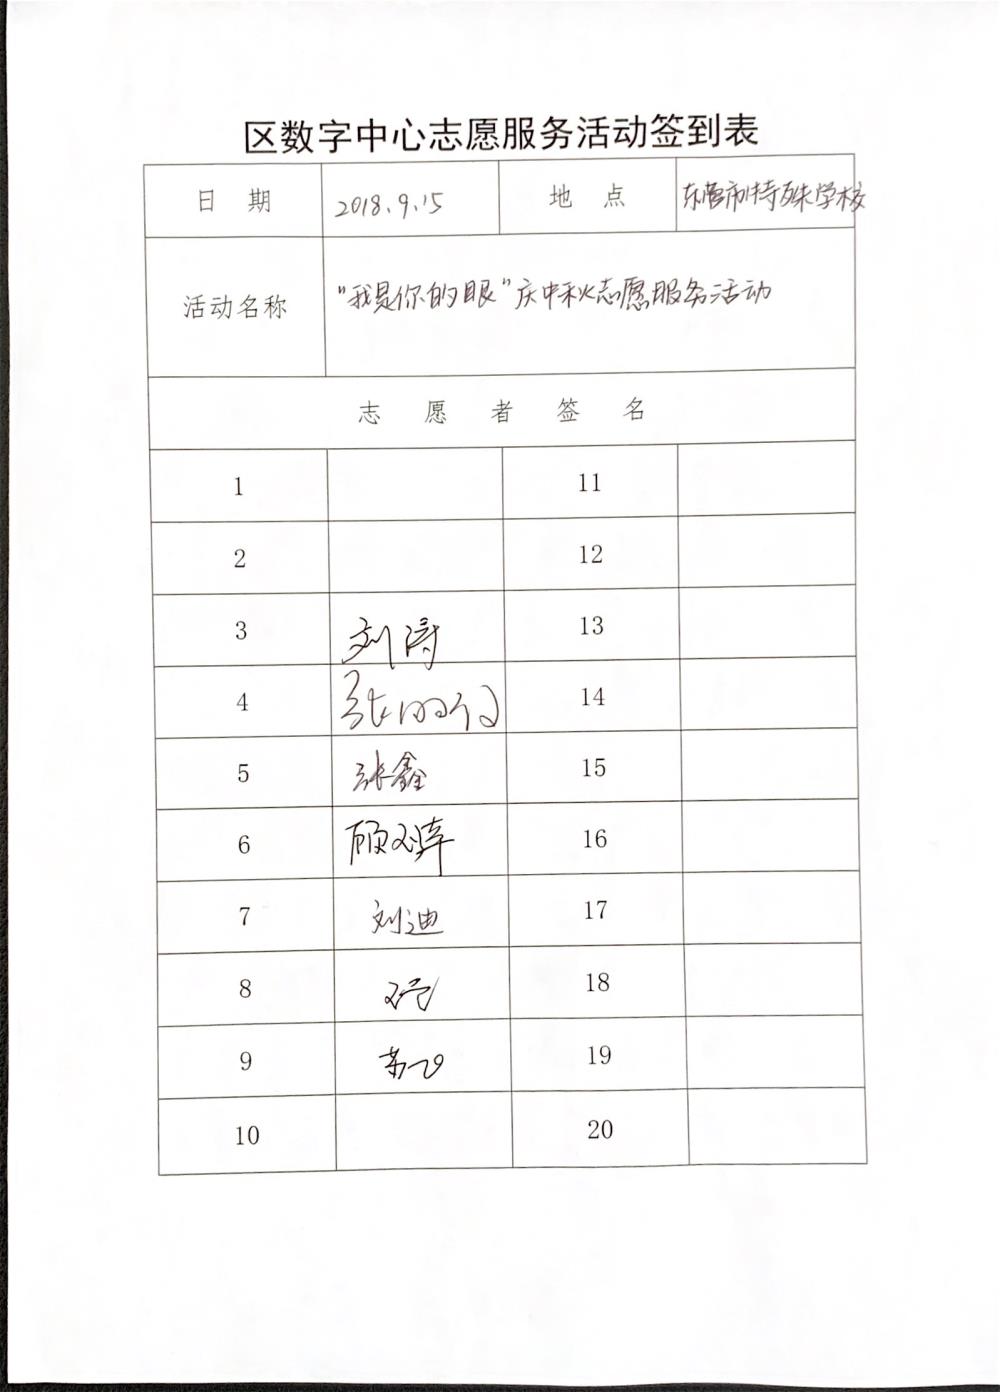 区数字中心志愿服务活动签到表
日 期 2018.9.15 地 点 东营市特殊学校
活动名称 "我是你的眼"庆中秋志愿服务活动
志 愿 者 签 名
1 11
2 12
3 刘涛 13
4 张 14
5 张鑫 15
6 顾 16
7 刘迪 17
8 18
9 19
10 20